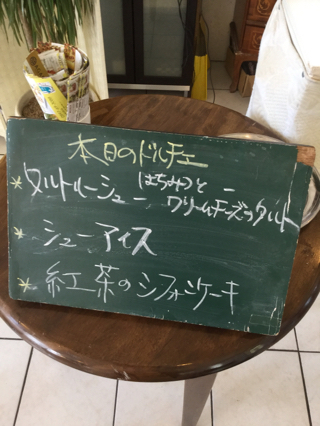 本日のドルチェ
* タルトルーシュー はちみつと
クリームチーズのタルト
* シューアイス
* 紅茶のシフォンケーキ